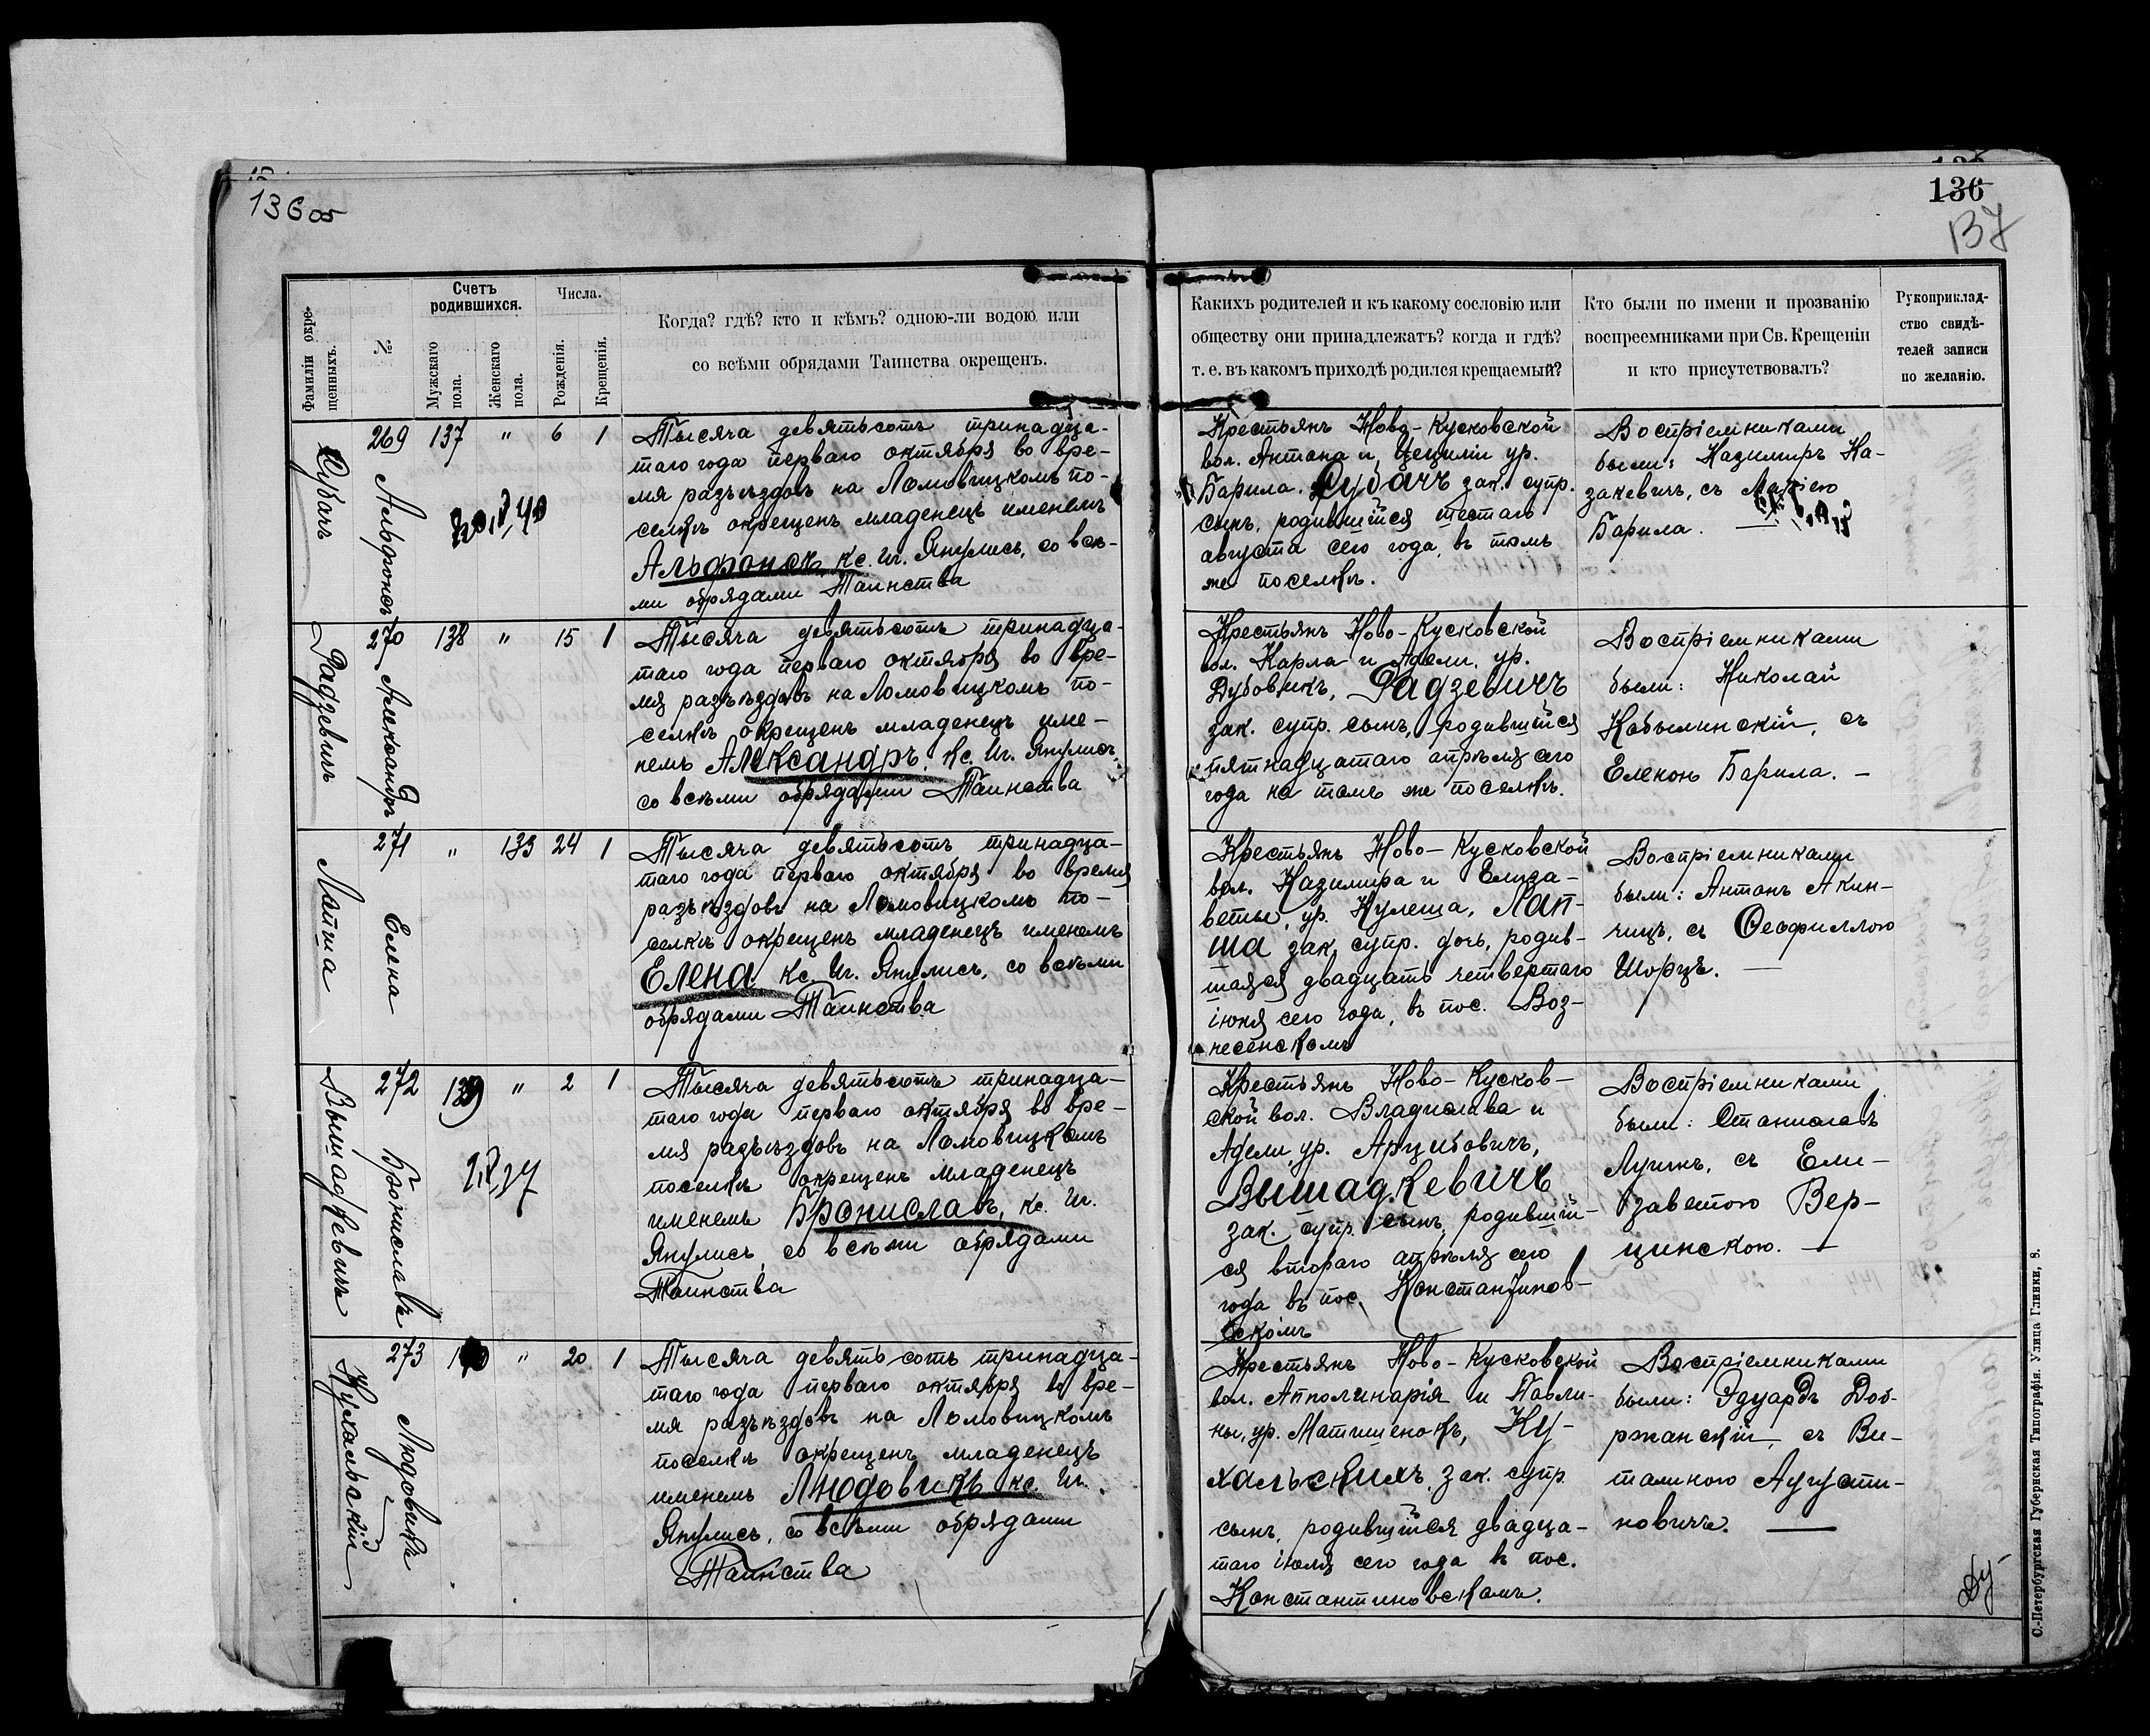 136об
136
137
Фамиліи окре-
щенныхъ.
№
Счетъ
родившихся.
Мужскаго
пола.
Женскаго
пола.
Числа.
Рожденія.
Крещенія.
Когда? гдѣ? кто и кѣмъ? одною-ли водою или
со всѣми обрядами Таинства окрещенъ.
Какихъ родителей и къ какому сословію или
обществу они принадлежатъ? когда и гдѣ?
т. е. въ какомъ приходѣ родился крещаемый?
Кто были по имени и прозванію
воспреемниками при Св. Крещеніи
и кто присутствовалъ?
Рукоприклад-
ство свидѣ-
телей записи
по желанію.
Дубачъ
269
Альфонсъ
137 " 6 1
Тысяча девятьсотъ тринадца-
таго года перваго октября во вре-
мя разъѣздовъ на Ломовицкомъ по-
селкѣ окрещенъ младенецъ именемъ
Альфонсъ, кс. Иг. Янулисъ, со всѣ-
ми обрядами Таинства
Крестьянъ Ново-Кусковской
вол. Антона и Цециліи ур.
Барила, Дубачъ зак. супр.
сынъ, родившійся шестаго
августа сего года, въ томъ
же поселкѣ.
Воспріемниками
были: Казимиръ Ка-
закевичъ, съ
Барила. —
Радзевичъ
270
Александръ
138 " 15 1
Тысяча девятьсотъ тринадца-
таго года перваго октября во вре-
мя разъѣздовъ на Ломовицкомъ по-
селкѣ окрещенъ младенецъ име-
немъ Александръ, кс. Иг. Янулисъ,
со всѣми обрядами Таинства
Крестьянъ Ново-Кусковской
вол. Карла и Адели, ур.
Дубовикъ, Радзевичъ
зак. супр. сынъ, родившійся
пятнадцатаго апрѣля сего
года на томъ же поселкѣ.
Воспріемниками
были: Николай
Кобылинскій, съ
Еленою Барила. —
Лапша
271
Елена
" 133 24 1
Тысяча девятьсотъ тринадца-
таго года перваго октября во время
разъѣздовъ на Ломовицкомъ по-
селкѣ окрещенъ младенецъ именемъ
Елена кс. Иг. Янулисъ, со всѣми
обрядами Таинства
Крестьянъ Ново-Кусковской
вол. Казимира и Елиза-
веты, ур. Кулеша, Лап-
ша зак. супр. дочь, родив-
шаяся двадцать четвертаго
іюня сего года, въ пос. Воз-
несенскомъ
Воспріемниками
были: Антонъ Акин-
чицъ, съ Феофиллою
Шорцъ. —
Вышадкевичъ
272
Брониславъ
139 " 2 1
Тысяча девятьсотъ тринадца-
таго года перваго октября во вре-
мя разъѣздовъ на Ломовицкомъ
поселкѣ окрещенъ младенецъ
именемъ Брониславъ, кс. Иг.
Янулисъ, со всѣми обрядами
Таинства
Крестьянъ Ново-Кусков-
ской вол. Владислава и
Адели, ур. Арцибовичъ,
Вышадкевичъ
зак. супр. сынъ, родившій-
ся втораго апрѣля сего
года въ пос. Константинов-
скомъ
Воспріемниками
были: Станиславъ
съ Ели-
заветою Вер-
цинскою. —
Кухальскій
273
Людовикъ
" 20 1
Тысяча девятьсотъ тринадца-
таго года перваго октября во вре-
мя разъѣздовъ на Ломовицкомъ
поселкѣ окрещенъ младенецъ
именемъ Людовикъ кс. Иг.
Янулисъ, со всѣми обрядами
Таинства
Крестьянъ Ново-Кусковской
вол. Апполинарія и Павли-
ны, ур. Матишенокъ, Ку-
хальскихъ зак. супр.
сынъ, родившійся двадца-
таго іюля сего года въ пос.
Константиновскомъ.
Воспріемниками
были: Эдуардъ Доб-
ржанскій, съ Ви-
талиною Аугусти-
новичъ. —
С.-Петербургская Губернская Типографія. Улица Глинки, 8.